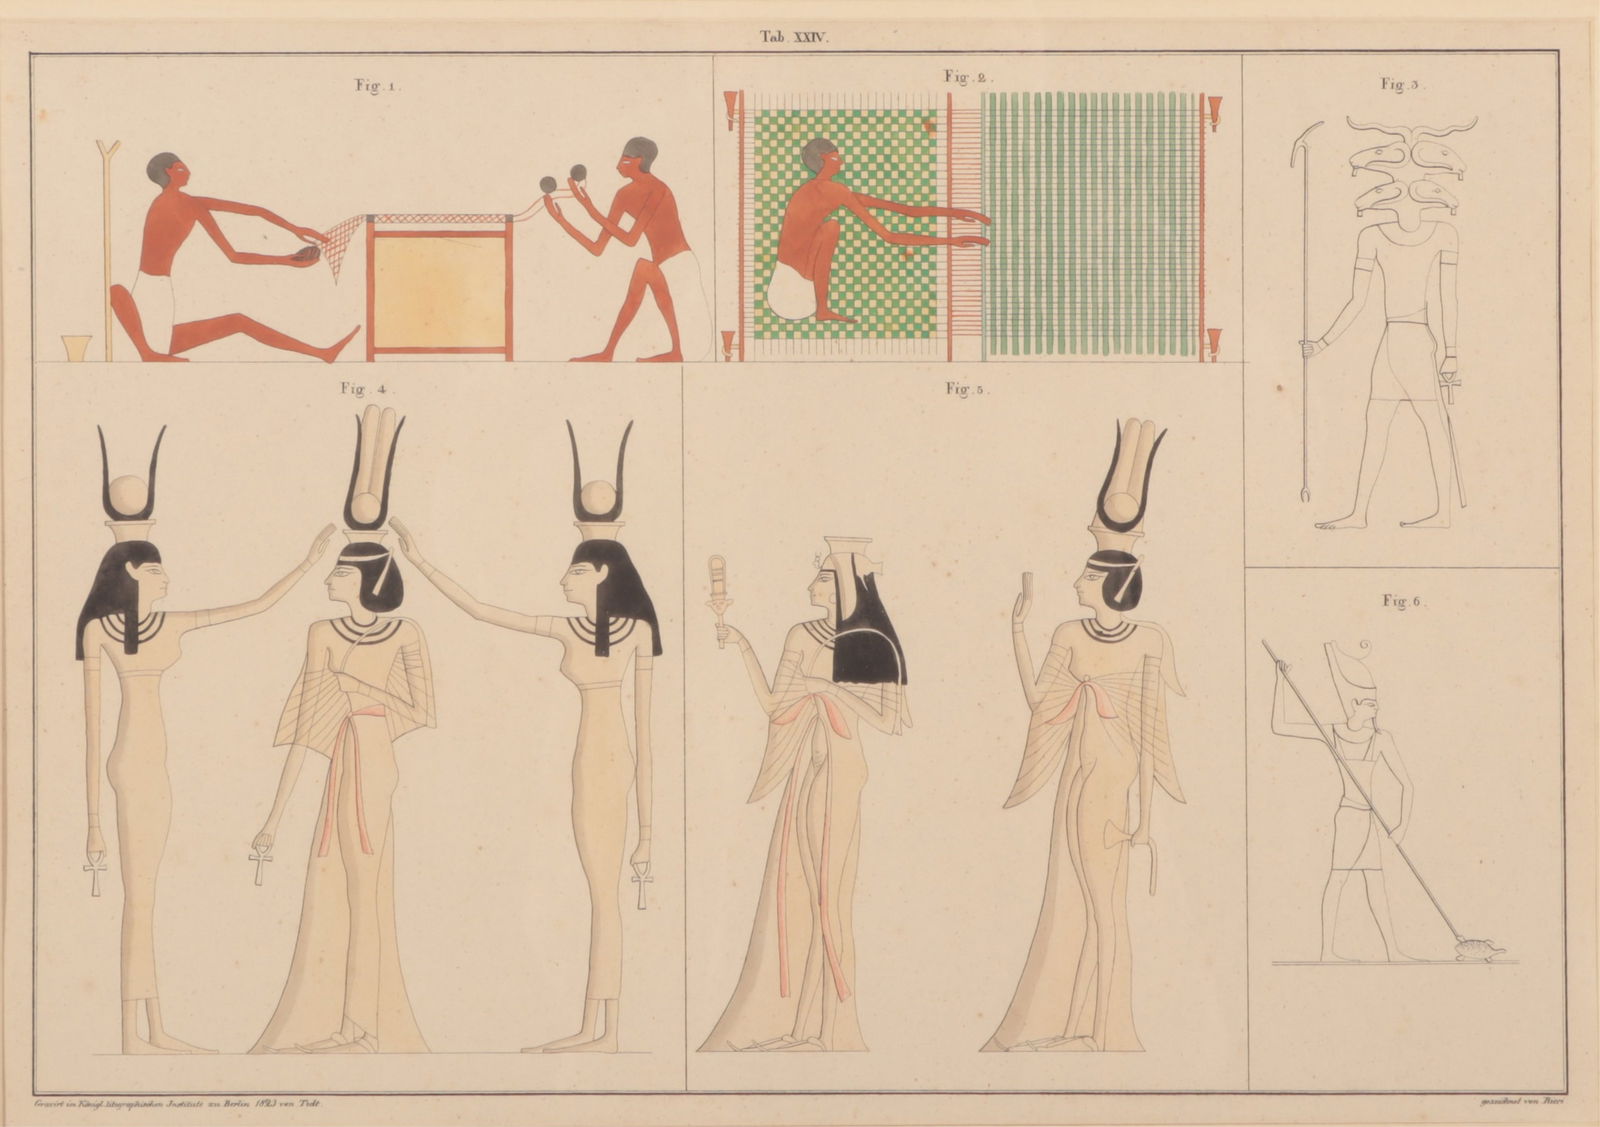 Tab. XXIV.
Fig. 1.
Fig. 2.
Fig. 3.
Fig. 4.
Fig. 5.
Fig. 6.
Gravirt im Königl. lithographischen Institute zu Berlin 1823 von
gezeichnet von